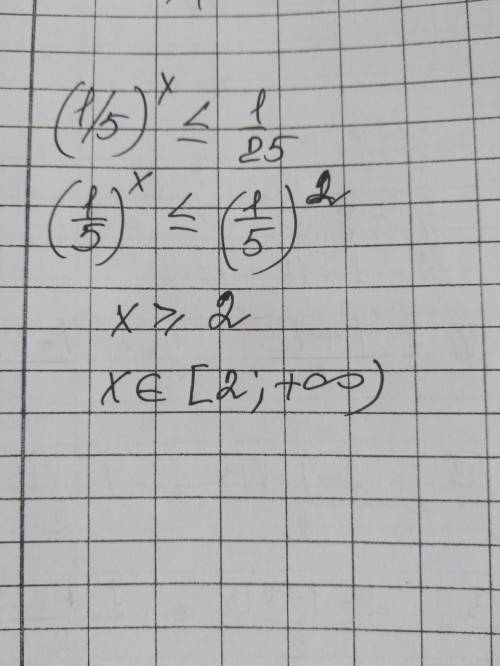 (1/5)^x ≤ 1/25
(1/5)^x ≤ (1/5)^2
x ⩾ 2
x ∈ [2; +∞)